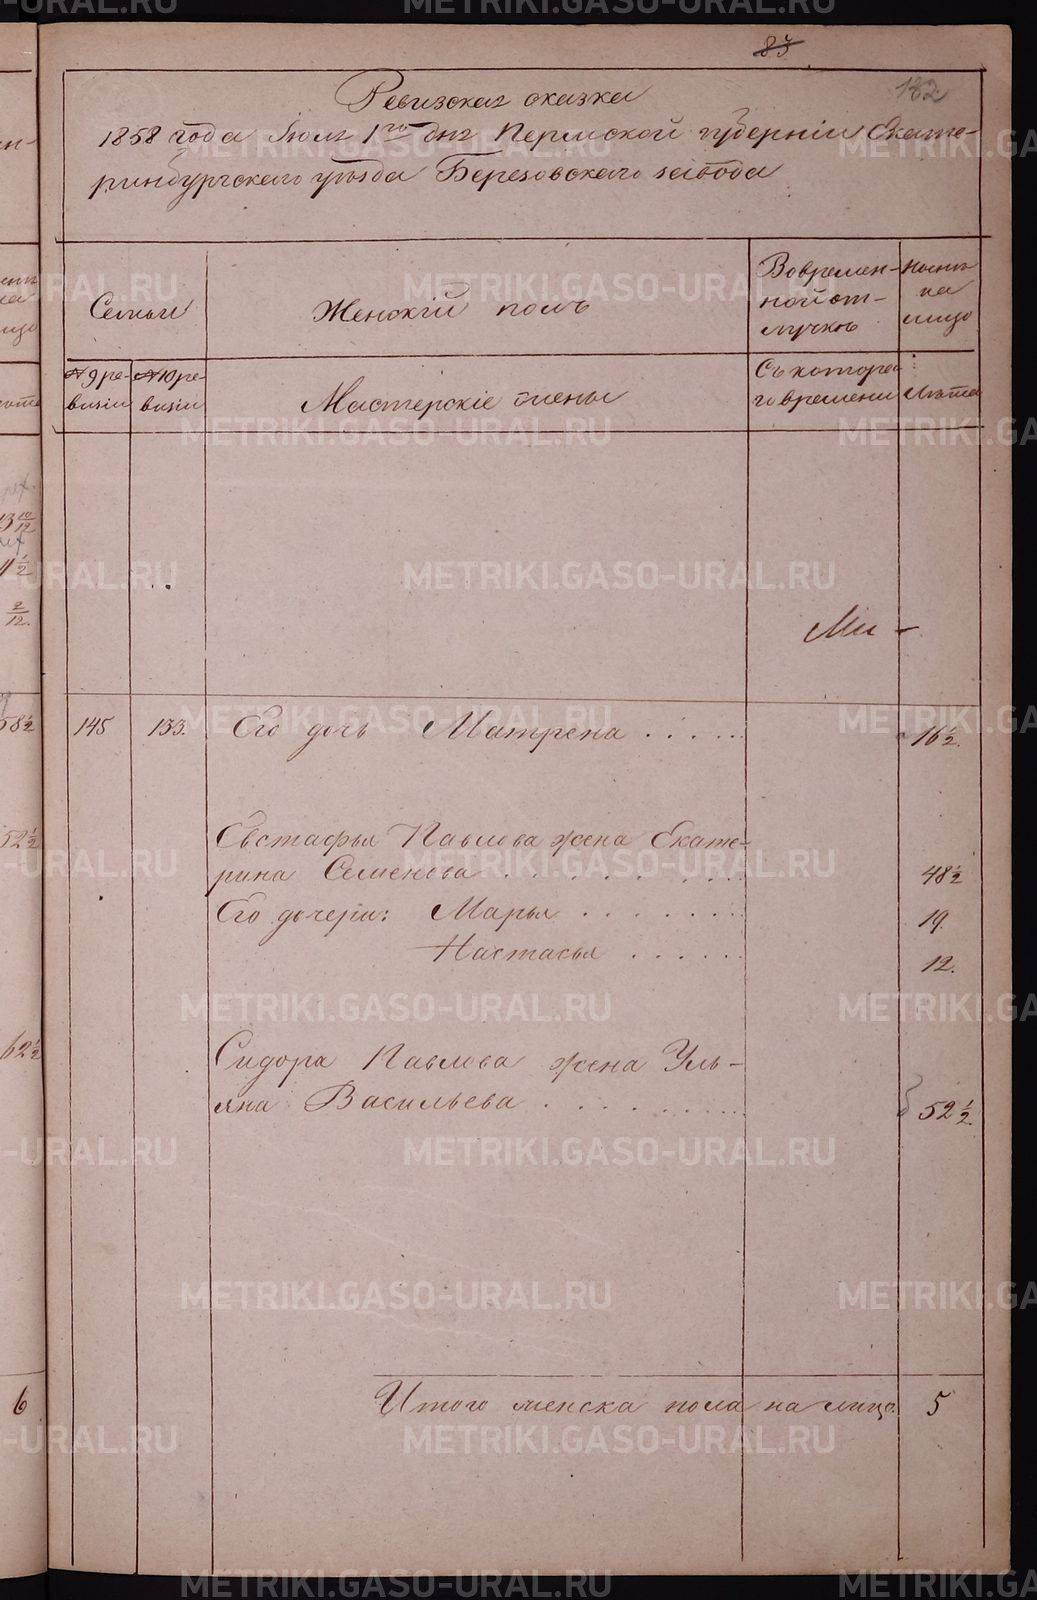 83
182
Ревизская сказка
1858 года Июля 1го дня Пермской губернiи Екате-
ринбургскаго уѣзда Березовскаго завода
Семьи
Женскiй полъ
Во времен-
ной от-
лучкѣ
На
лицо
№ 9 ре-
визiи
№ 10 ре-
визiи
Мастерскiе жены
Съ которо
го времени
Лѣта
145
133.
Его дочь Матрена
16½.
Евстафья Павлова жена Екате-
рина Семенова
48½
Его дочери: Марья
19.
Настасья
12.
Сидора Павлова жена Уль-
яна Васильева
52½
Итого женска пола на лицо
5
13 10/12
2/12.
58½
52½
62½
6
METRIKI.GASO-URAL.RU